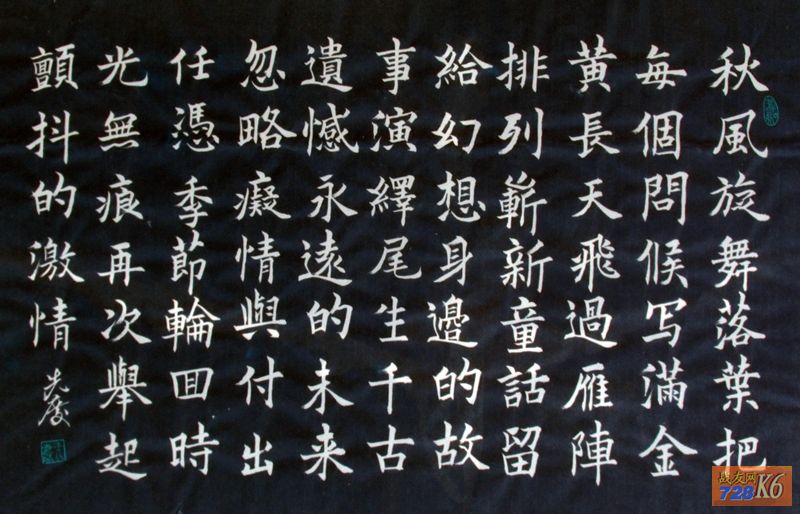 秋風旋舞落葉把
每個問候写滿金
黃長天飛過雁陣
排列嶄新童話留
給幻想身邊的故
事演繹尾生千古
遺憾永遠的未来
忽略癡情與付出
任憑季節輪回時
光無痕再次舉起
顫抖的激情
战友网
728K6